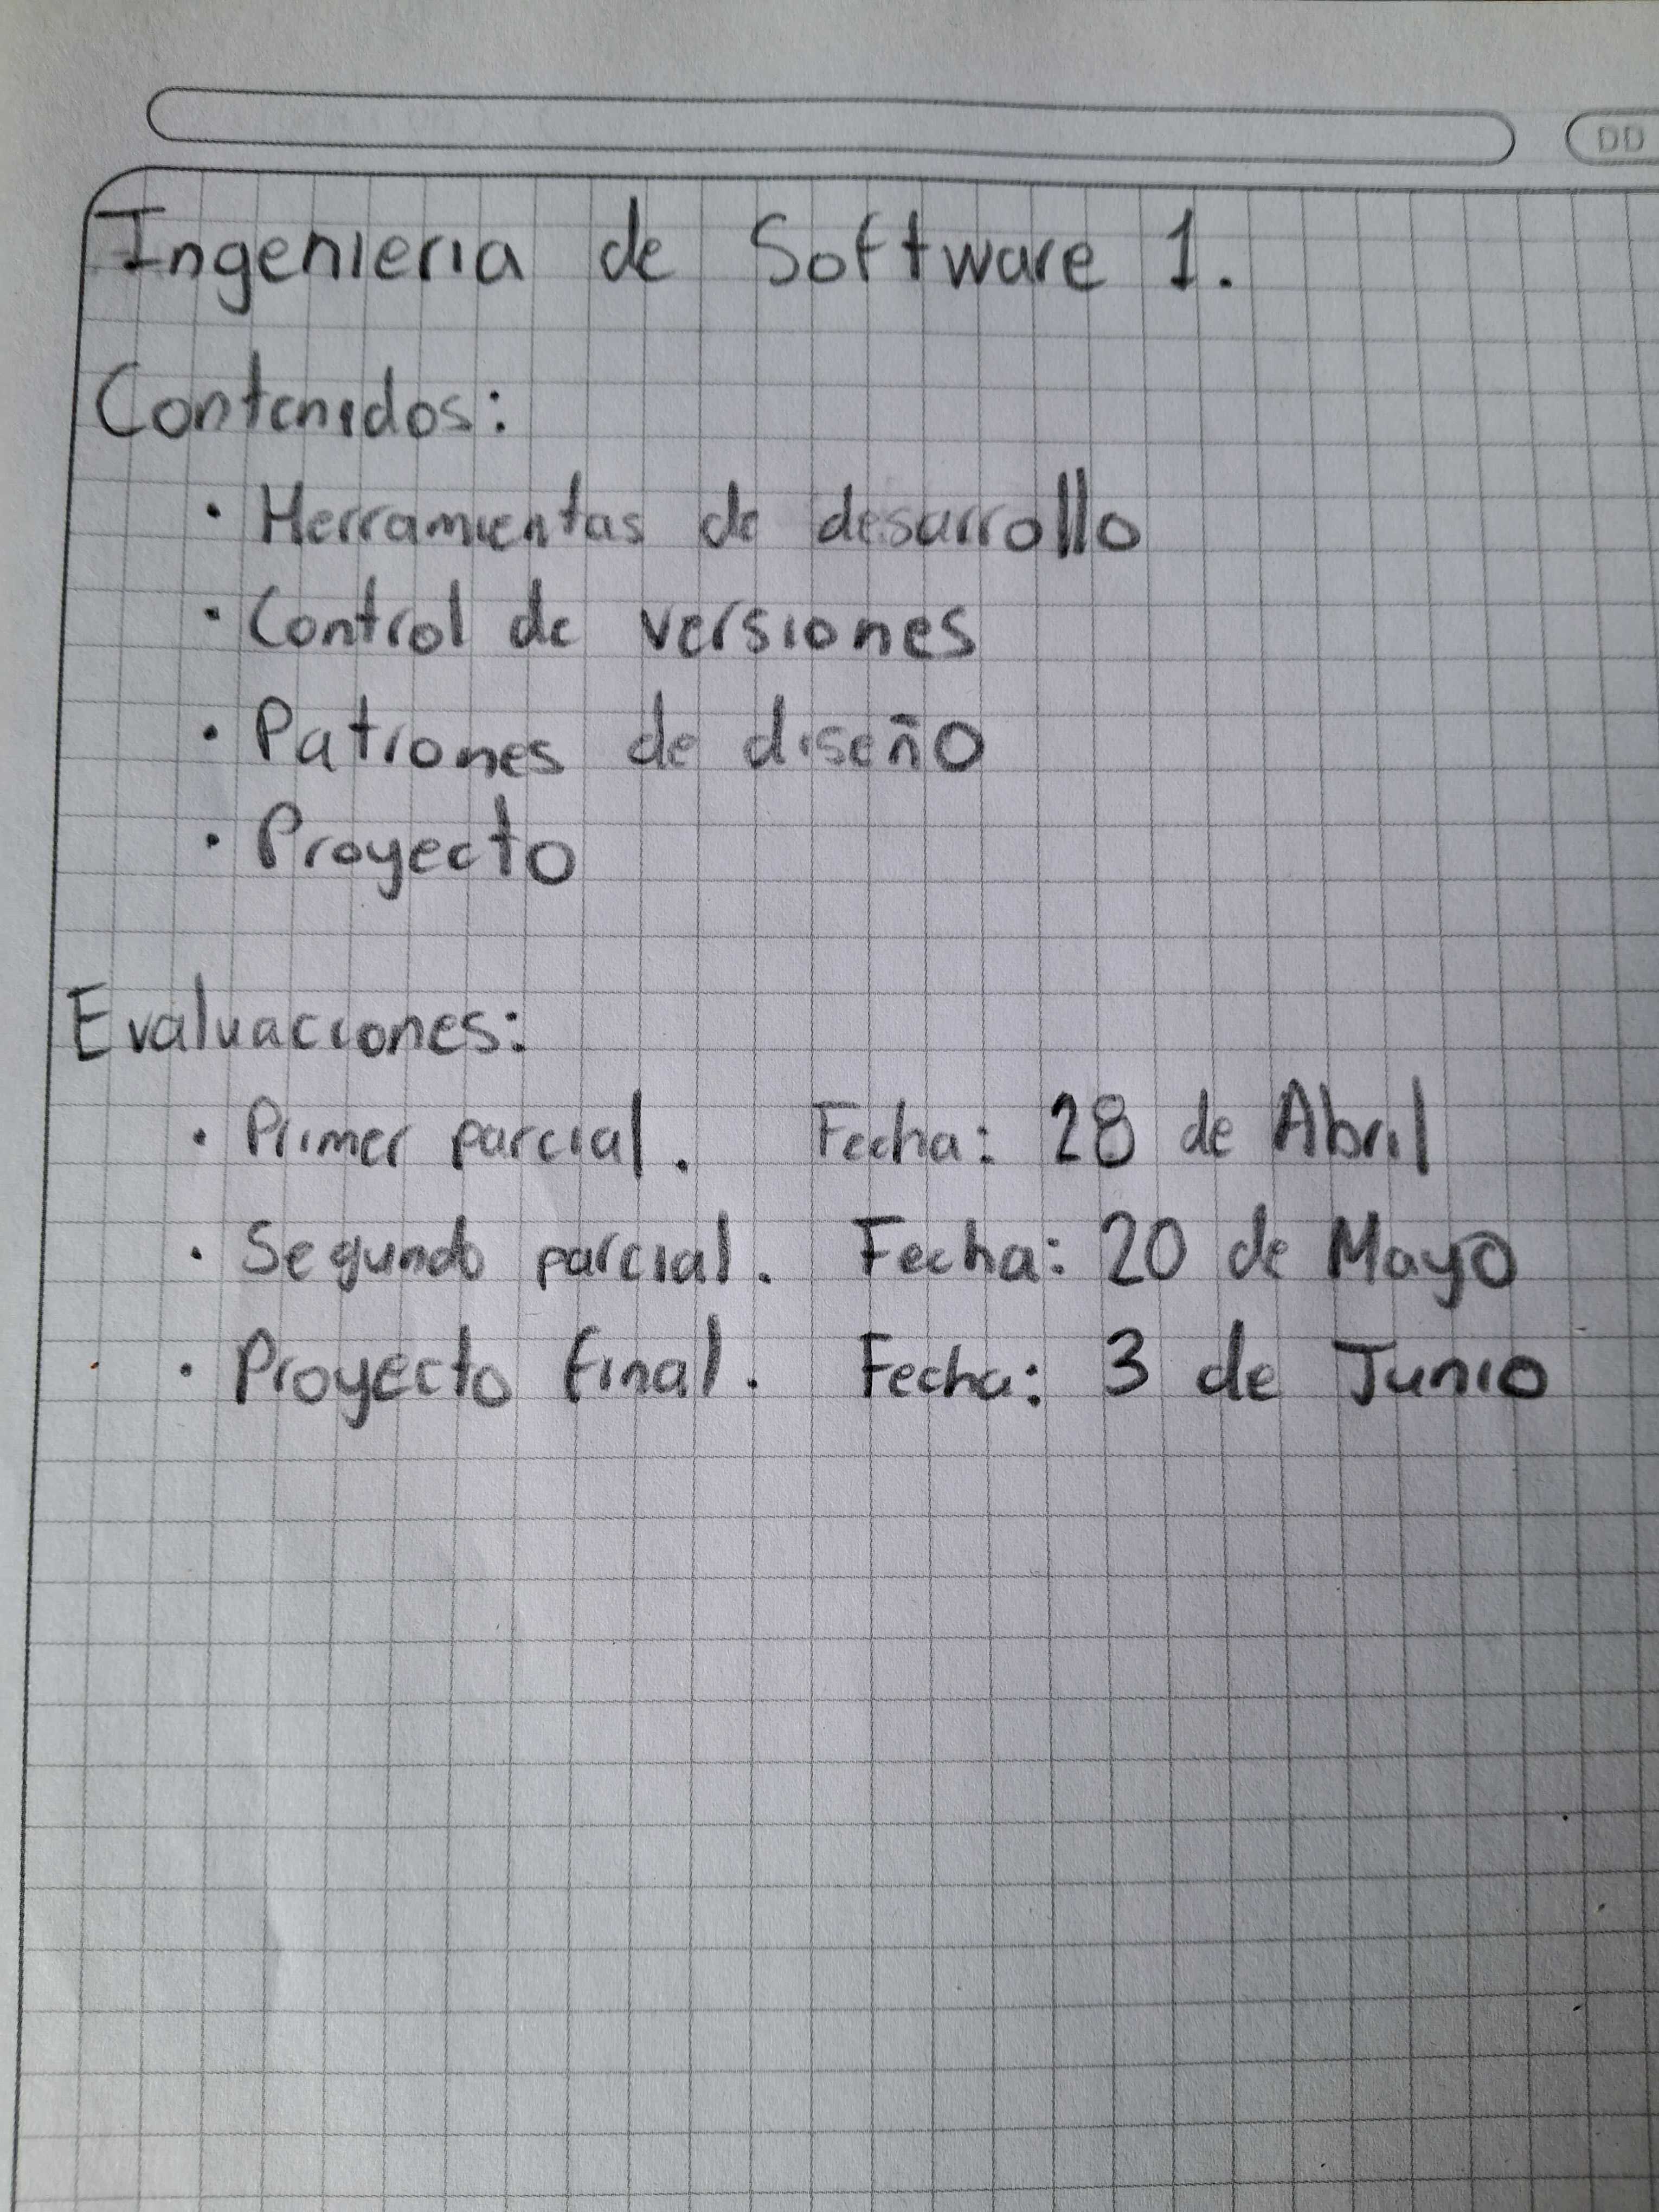 DD
Ingenieria de Software 1.
Contenidos:
· Herramientas de desarrollo
· Control de versiones
· Patrones de diseño
· Proyecto
Evaluaciones:
· Primer parcial. Fecha: 28 de Abril
· Segundo parcial. Fecha: 20 de Mayo
· Proyecto final. Fecha: 3 de Junio